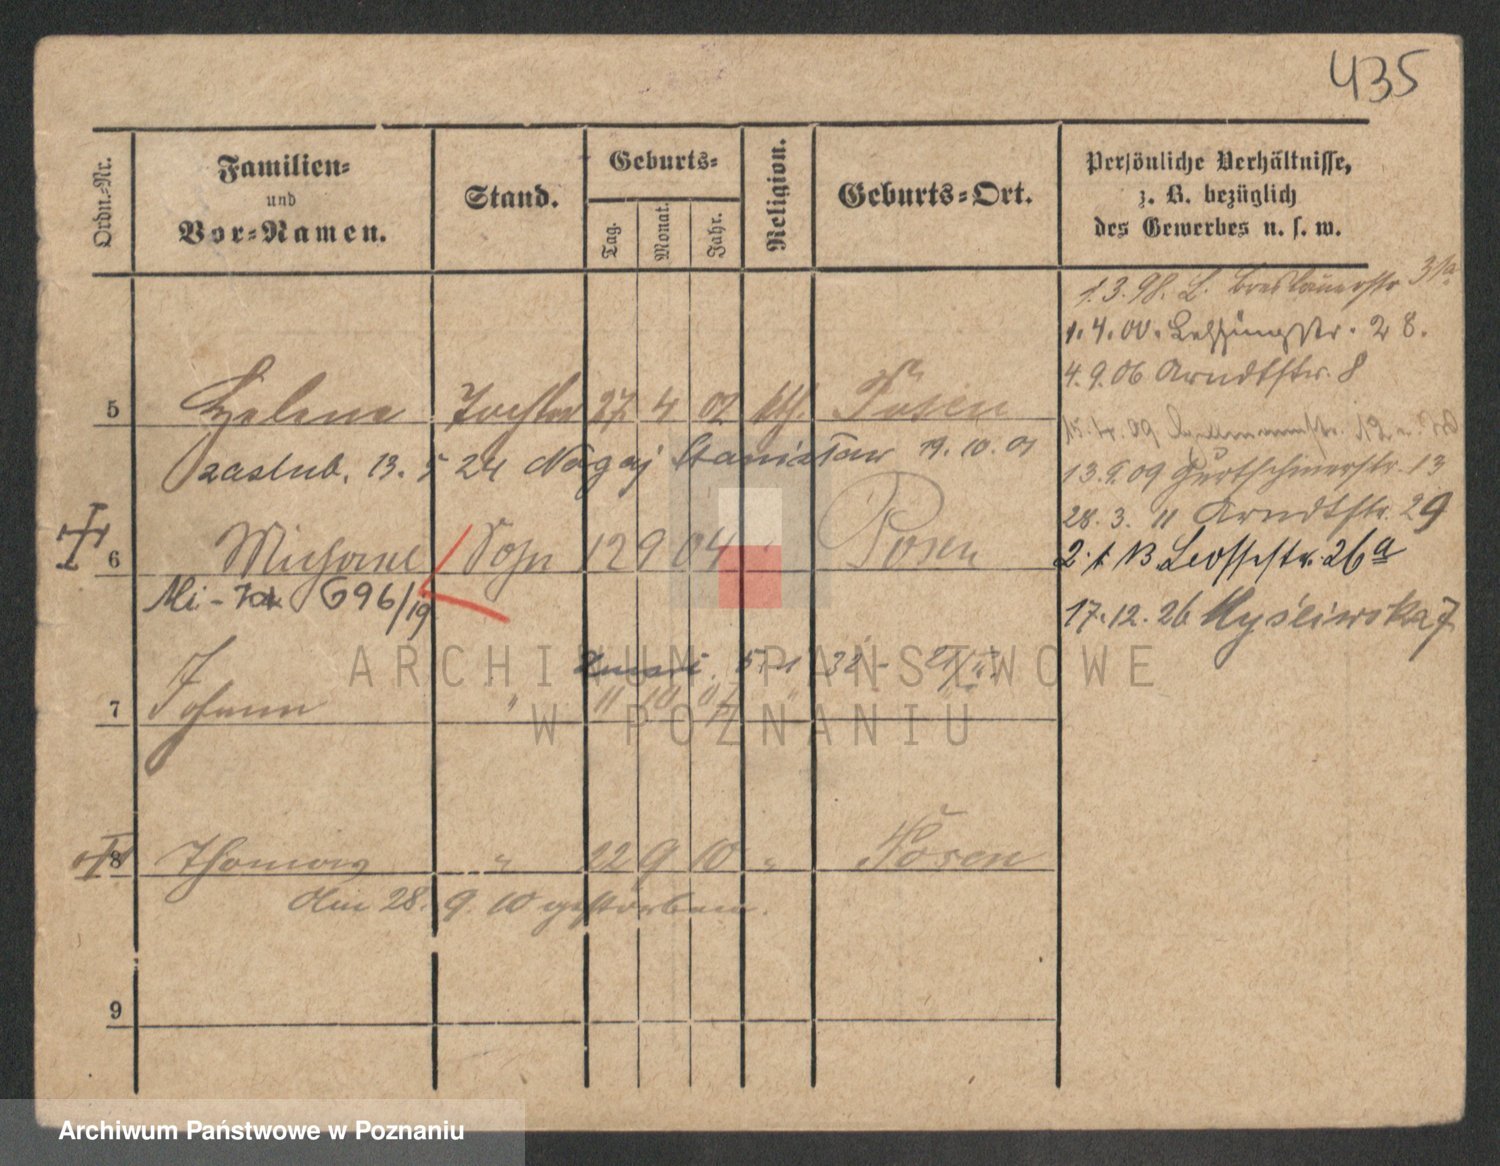 435
Ordn.-Nr.
Familien-
und
Vor-Namen.
Stand.
Geburts-
Tag.
Monat.
Jahr.
Religion.
Geburts-Ort.
Persönliche Verhältnisse,
z. B. bezüglich
des Gewerbes u. s. w.
1.3.98. L. Breslauerstr 31a
1.4.00. Lessingstr. 28.
4.9.06 Arndtstr. 8
5 Helene Tochter 27 4 02 kth. Posen
09 12
zaslub. 13. 5 24 Nogaj Stanisław 19. 10. 01
13.9.09 Gurtschinerstr. 13
28. 3. 11 Arndtstr. 29
6 Sohn 12 9 04 Posen
26a
Mi- 696/19
17.12.26 Myśliwska 7
7 Johann " 11 10 07 "
8 Thomas " 22 9 10 " Posen
Am 28. 9. 10 gestorben.
9
ARCHIWUM PAŃSTWOWE
W POZNANIU
Archiwum Państwowe w Poznaniu